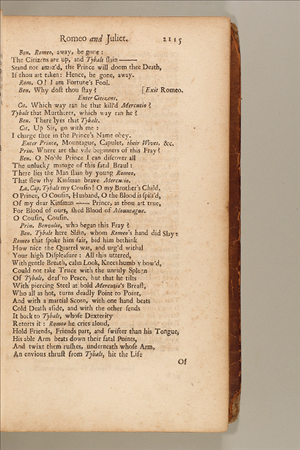 Romeo and Juliet. 2115
Ben. Romeo, away, be gone:
The Citizens are up, and Tybalt slain —
Stand not amaz'd, the Prince will doom thee Death,
If thou art taken: Hence, be gone, away.
Rom. O! I am Fortune's Fool.
Ben. Why dost thou stay? [Exit Romeo.
Enter Citizens.
Cit. Which way ran he that kill'd Mercutio?
Tybalt that Murtherer, which way ran he?
Ben. There lyes that Tybalt.
Cit. Up Sir, go with me:
I charge thee in the Prince's Name obey.
Enter Prince, Mountague, Capulet, their Wives, &c.
Prin. Where are the vile beginners of this Fray?
Ben. O Noble Prince I can discover all
The unlucky manage of this fatal Braul:
There lies the Man slain by young Romeo,
That slew thy Kinsman brave Mercutio.
La. Cap. Tybalt my Cousin! O my Brother's Child,
O Prince, O Cousin, Husband, O the Blood is spill'd,
Of my dear Kinsman — Prince, as thou art true,
For Blood of ours, shed Blood of Mountague.
O Cousin, Cousin.
Prin. Benvolio, who began this Fray?
Ben. Tybalt here slain, whom Romeo's hand did slay:
Romeo that spoke him fair, bid him bethink
How nice the Quarrel was, and urg'd withal
Your high Displeasure: All this uttered,
With gentle Breath, calm Look, Knees humbly bow'd,
Could not take Truce with the unruly Spleen
Of Tybalt, deaf to Peace, but that he tilts
With piercing Steel at bold Mercutio's Breast,
Who all as hot, turns deadly Point to Point,
And with a martial Scorn, with one hand beats
Cold Death aside, and with the other sends
It back to Tybalt, whose Dexterity
Retorts it: Romeo he cries aloud,
Hold Friends, Friends part, and swifter than his Tongue,
His able Arm beats down their fatal Points,
And twixt them rushes, underneath whose Arm,
An envious thrust from Tybalt, hit the Life
Of